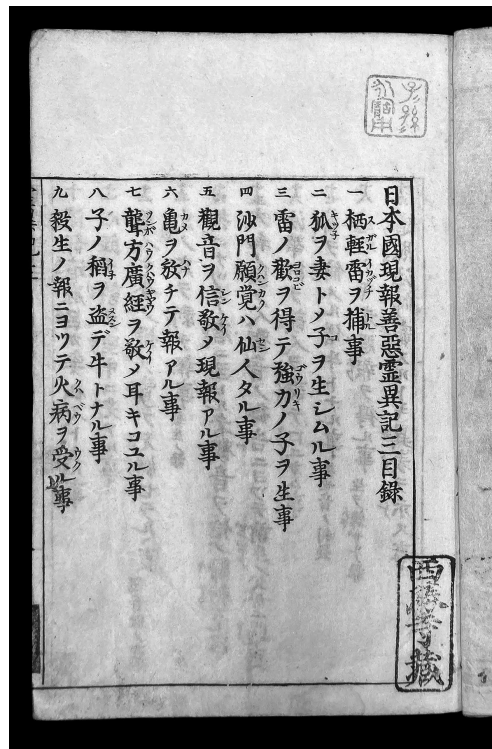 日本國現報善惡霊異記三目録
一 栖軽雷ヲ捕事
二 狐ヲ妻トメ子ヲ生シムル事
三 雷ノ歡ヲ得テ強力ノ子ヲ生事
四 沙門願覚ハ仙人タル事
五 觀音ヲ信敬メ現報アル事
六 亀ヲ放チテ報アル事
七 聾方廣経ヲ敬メ耳キコユル事
八 子ノ稲ヲ盗デ牛トナル事
九 殺生ノ報ニヨツテ火病ヲ受ル事